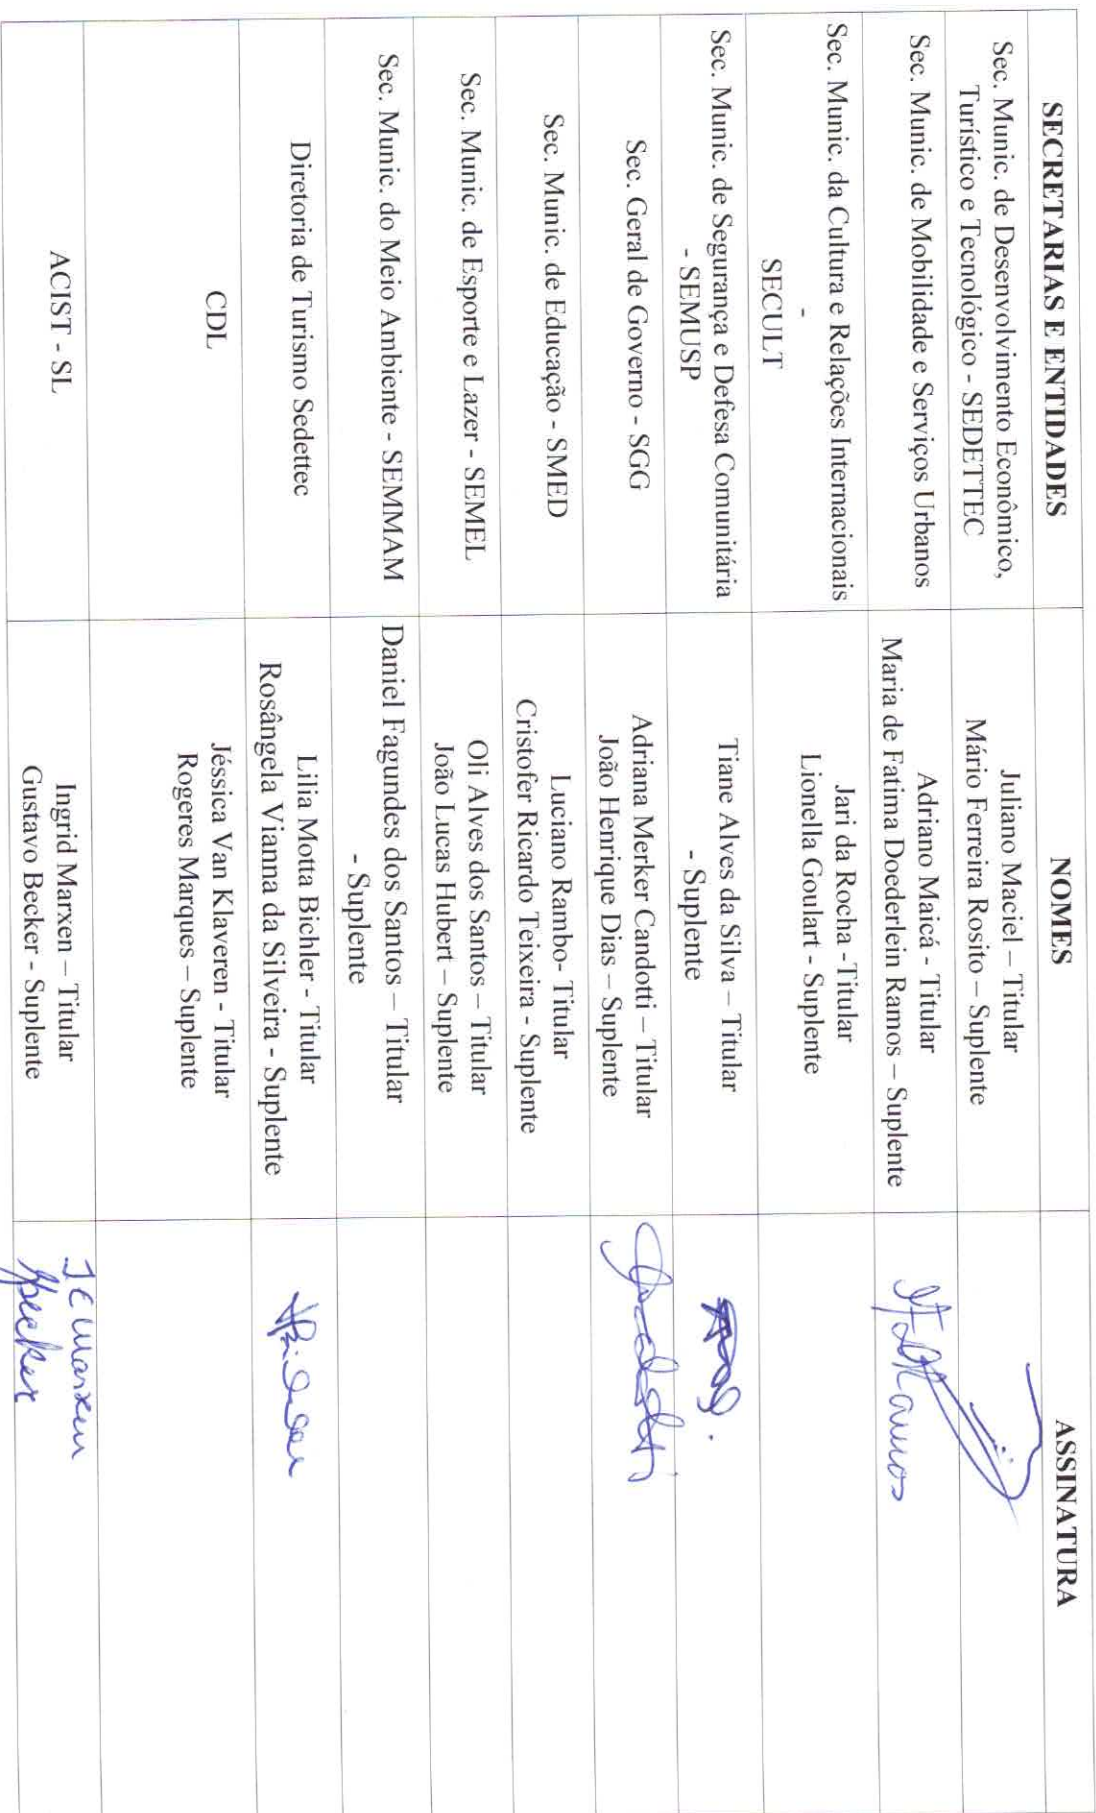 SECRETARIAS E ENTIDADES NOMES ASSINATURA
Sec. Munic. de Desenvolvimento Econômico,
Turístico e Tecnológico - SEDETTEC
Juliano Maciel – Titular
Mário Ferreira Rosito – Suplente
Sec. Munic. de Mobilidade e Serviços Urbanos
Adriano Maicá - Titular
Maria de Fatima Doederlein Ramos – Suplente
Ramos
Sec. Munic. da Cultura e Relações Internacionais
-
SECULT
Jari da Rocha -Titular
Lionella Goulart - Suplente
Sec. Munic. de Segurança e Defesa Comunitária
- SEMUSP
Tiane Alves da Silva – Titular
- Suplente
Sec. Geral de Governo - SGG
Adriana Merker Candotti – Titular
João Henrique Dias – Suplente
Sec. Munic. de Educação - SMED
Luciano Rambo- Titular
Cristofer Ricardo Teixeira - Suplente
Sec. Munic. de Esporte e Lazer - SEMEL
Oli Alves dos Santos – Titular
João Lucas Hubert – Suplente
Sec. Munic. do Meio Ambiente - SEMMAM
Daniel Fagundes dos Santos – Titular
- Suplente
Diretoria de Turismo Sedettec
Lilia Motta Bichler - Titular
Rosângela Vianna da Silveira - Suplente
CDL
Jéssica Van Klaveren - Titular
Rogeres Marques – Suplente
ACIST - SL
Ingrid Marxen – Titular
Gustavo Becker - Suplente
Marxen
Becker